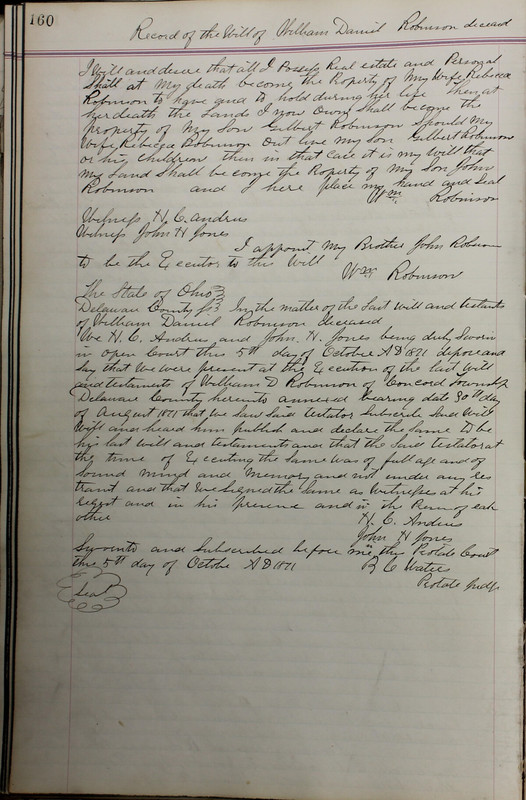 160
Record of the Will of William Daniel Robinson deceasd
I Will and desire that all I Possess Real estate and Personal
Shall at My death become the Property of My Wife Rebecca
Robinson to have and to hold during her live then at
her death the Lands I now Own Shall become the
property of My Son Gilbert Robinson Should My
Wife Rebecca Robinson Out live My Son Gilbert Robinson
or his Children then in that Case it is my Will that
My Land Shall become the Property of My Son John
Robinson and I here place my hand and Seal
Wm Robinson
Witness H. C. Andrus
Witness John H Jones
I appoint My Brother John Robinson
to be the Executor to this Will
Wm Robinson
The State of Ohio
Delaware County ss In the matter of the Last Will and testaments
of William Daniel Robinson deceased
We H. C. Andrus and John. H. Jones being duly Sworn
in Open Court this 5th day of October AD 1871 depose and
Say that We were present at the Execution of the last Will
and testaments of William D Robinson of Concord Township
Delaware County hereunto annexed bearing date 30th day
of August 1871 that we Saw Said testator Subscribe Said Will
Will and heard him publish and declare the Same to be
his last Will and testaments and that the Said testator at
the time of Executing the Same was of full age and of
Sound Mind and Memory and not under any res
traint and that We Signed the Same as Witnesses at his
reqest and in his presence and in the of each
other
H. C. Andrus
John H Jones
Sworn to and Subscribed before me in the Probate Court
this 5th day of Octobe AD 1871 B C Waters
Probate Judge
Seal